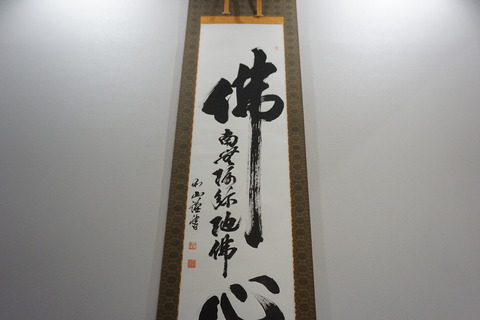 佛心
南無阿弥陀佛
山謹書